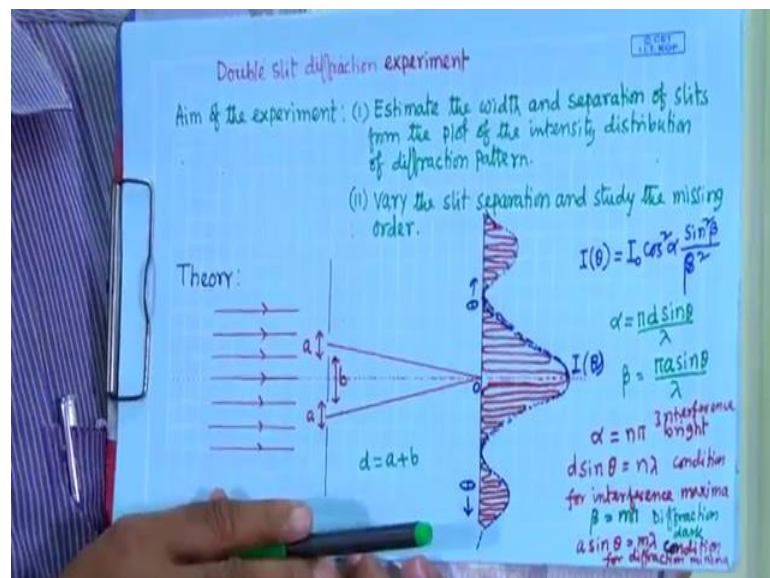 © CET
I.I.T. KGP
Double slit diffraction experiment
Aim of the experiment: (i) Estimate the width and separation of slits
from the plot of the intensity distribution
of diffraction pattern.
(ii) Vary the slit separation and study the missing
order.
Theory:
I(θ) = I₀ cos²α sin²β/β²
α = πd sinθ/λ
β = πa sinθ/λ
a
b
a
d = a+b
θ
O
I(θ)
θ
α = nπ Interference bright
d sinθ = nλ condition
for interference maxima
β = mπ Diffraction dark
a sinθ = mλ condition
for diffraction minima